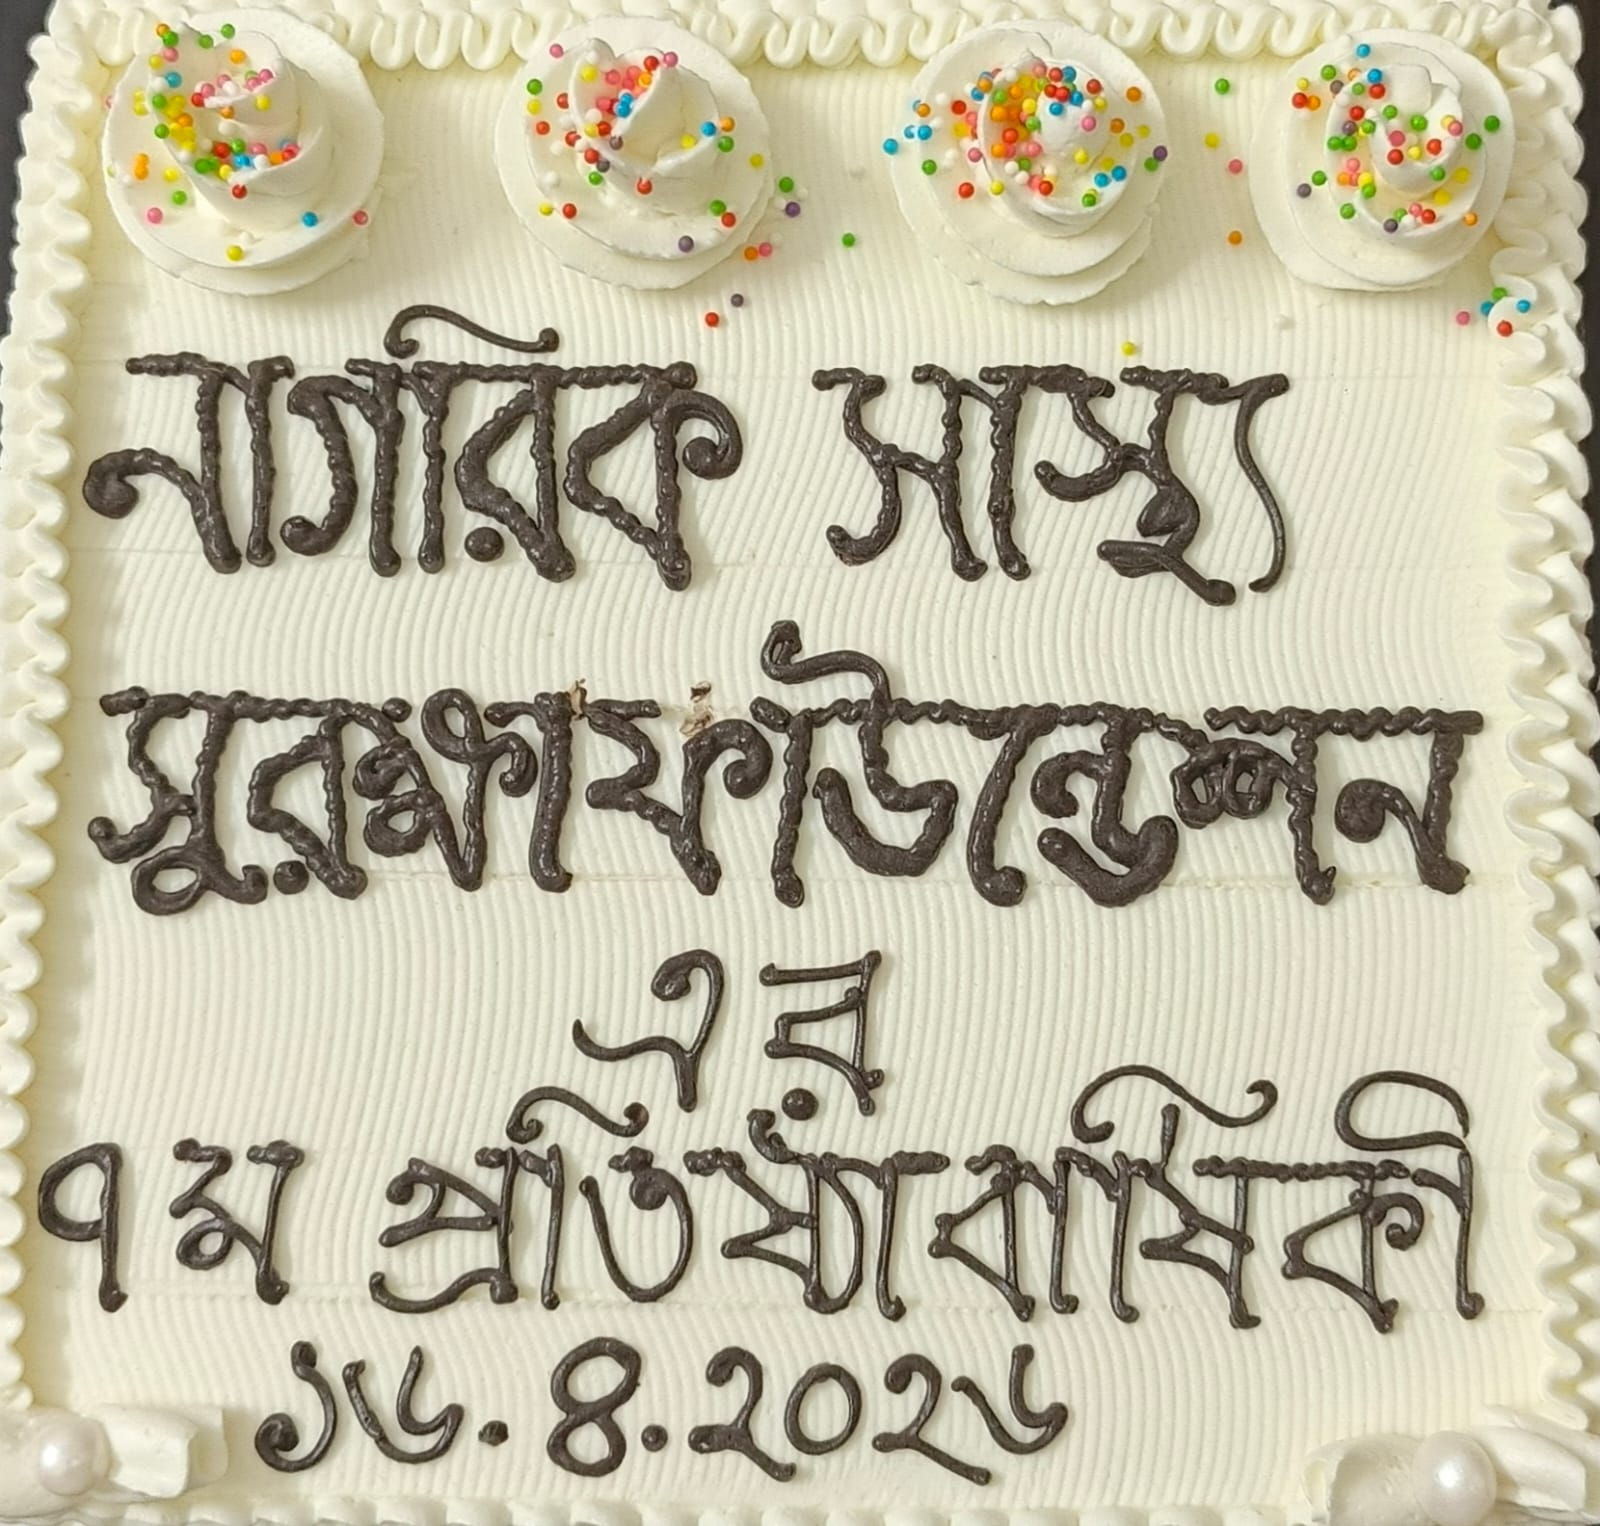 নাগরিক সাস্থ্য
সুরক্ষা ফাউন্ডেশন
এর
৭ম প্রতিষ্ঠাবার্ষিকী
১৬.৪.২০২৬